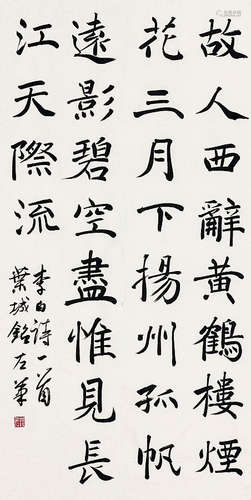 故人西辭黃鶴樓煙
花三月下揚州孤帆
遠影碧空盡惟見長
江天際流
李白詩一首
葉城銘左筆